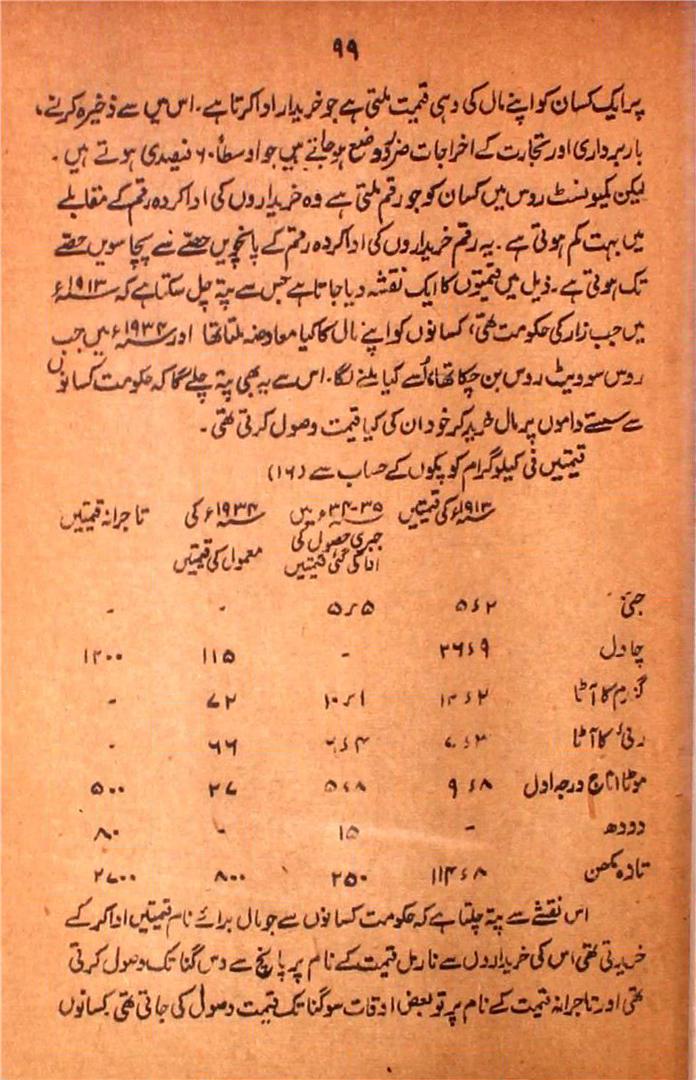 ۹۹
پر ایک کسان کو اپنے مال کی وہی قیمت ملتی ہے جو خریدار ادا کرتا ہے۔ اس میں سے ذخیرہ کرنے،
باربرداری اور تجارت کے اخراجات ضرور وضع ہو جاتے ہیں جو اوسطاً ۶۰ فیصدی ہوتے ہیں۔
لیکن کمیونسٹ روس میں کسان کو جو رقم ملتی ہے وہ خریداروں کی ادا کردہ رقم کے مقابلے
میں بہت کم ہوتی ہے۔ یہ رقم خریداروں کی ادا کردہ رقم کے پانچویں حصّے سے پچاسویں حصّے
تک ہوتی ہے۔ ذیل میں قیمتوں کا ایک نقشہ دیا جاتا ہے جس سے پتہ چل سکتا ہے کہ ۱۹۱۳ء
میں جب زار کی حکومت تھی، کسانوں کو اپنے مال کا کیا معاوضہ ملتا تھا اور ۱۹۳۴ء میں جب
روس سوویٹ روس بن چکا تھا، اُسے کیا ملنے لگا۔ اس سے یہ بھی پتہ چلے گا کہ حکومت کسانوں
سے سستے داموں پر مال خرید کر خود ان کی کیا قیمت وصول کرتی تھی۔
قیمتیں فی کیلوگرام کوپکوں کے حساب سے (۱۶)
۱۹۱۳ء کی قیمتیں ۳۵-۳۴ء میں ۱۹۳۴ء کی تاجرانہ قیمتیں
جبری حصول کی معمول کی قیمتیں
ادا کی گئی قیمتیں
جئی ۵ء۲ ۵ء۵ - -
چاول ۲۶ء۹ - ۱۱۵ ۱۲۰۰
گندم کا آٹا ۱۲ء۲ ۱۰ء۱ ۷۲ -
رئی کا آٹا ۶۶ -
موٹا اناج درجہ اول ۹ء۸ ۵ء۸ ۲۷ ۵۰۰
دودھ - ۱۵ - ۸۰
تازہ مکھن ۱۱۴ء۸ ۲۵۰ ۸۰۰ ۲۷۰۰
اس نقشے سے پتہ چلتا ہے کہ حکومت کسانوں سے جو مال برائے نام قیمتیں ادا کر کے
خریدتی تھی اس کی خریداروں سے نارمل قیمت کے نام پر پانچ سے دس گنا تک وصول کرتی
تھی اور تاجرانہ قیمت کے نام پر تو بعض اوقات سو گنا تک قیمت وصول کی جاتی تھی کسانوں